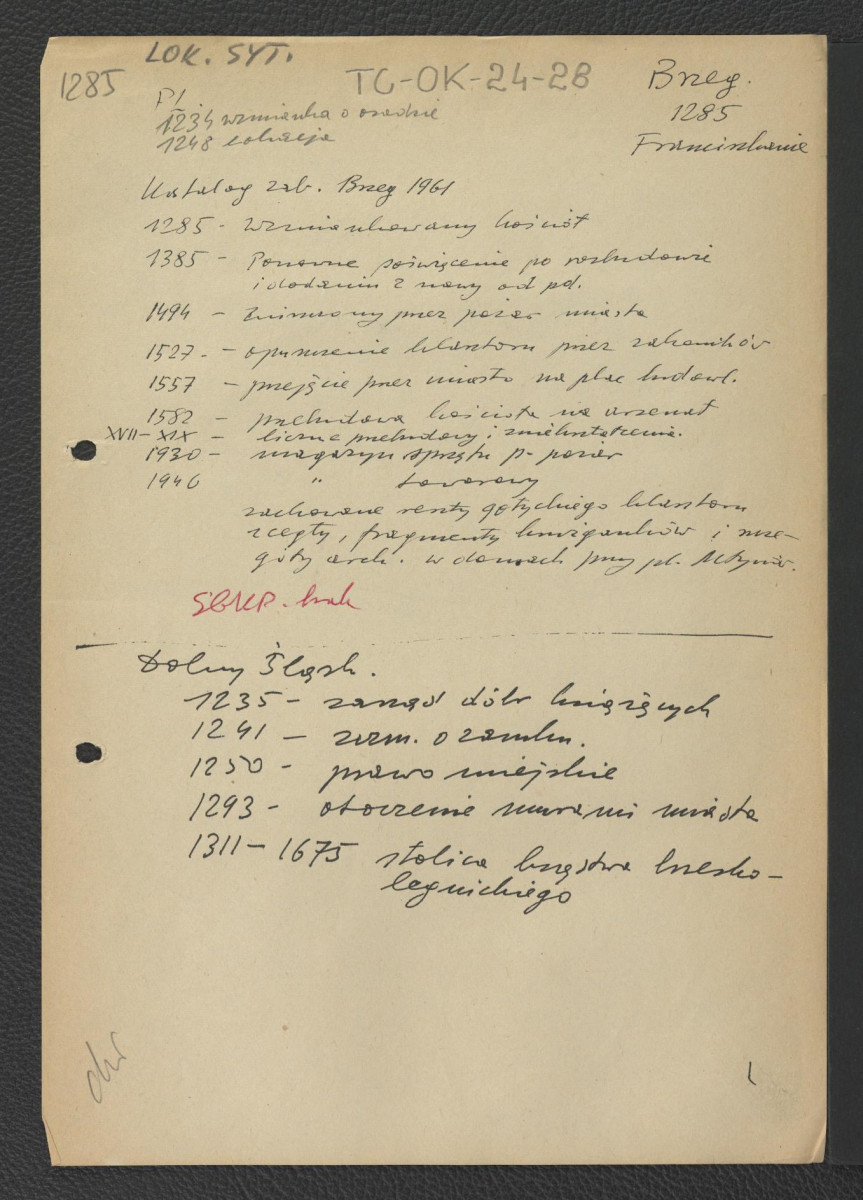 LOK. SYT.
1285
TC-OK-24-2B
Brzeg.
1285
Franciszkanie
PL
1234 wzmianka o osadzie
1248 lokacja
Katalog zab. Brzeg 1961
1285 - wzmiankowany kościół
1385 - Ponowne poświęcenie po rozbudowie
i dodaniu 2 nawy od pd.
1494 - zniszczony przez pożar miasta
1527. - opuszczenie klasztoru przez zakonników
1557 - przejęcie przez miasto na plac budowl.
1582 - przebudowa kościoła na arsenał
XVII - XIX - liczne przebudowy i zniekształcenia.
1930 - magazyn sprzętu p-pożar
1946 " towarowy
zachowane resztki gotyckiego klasztoru
szczyty, fragmenty krużganków i szcze-
góły arch. w domach przy pl. Młynów.
SGKP. brak
Dolny Śląsk.
1235 - zarząd dóbr książęcych
1241 - wzm. o zamku.
1250 - prawo miejskie
1293 - otoczenie murami miasta
1311 - 1675 stolica księstwa brzesko-
legnickiego